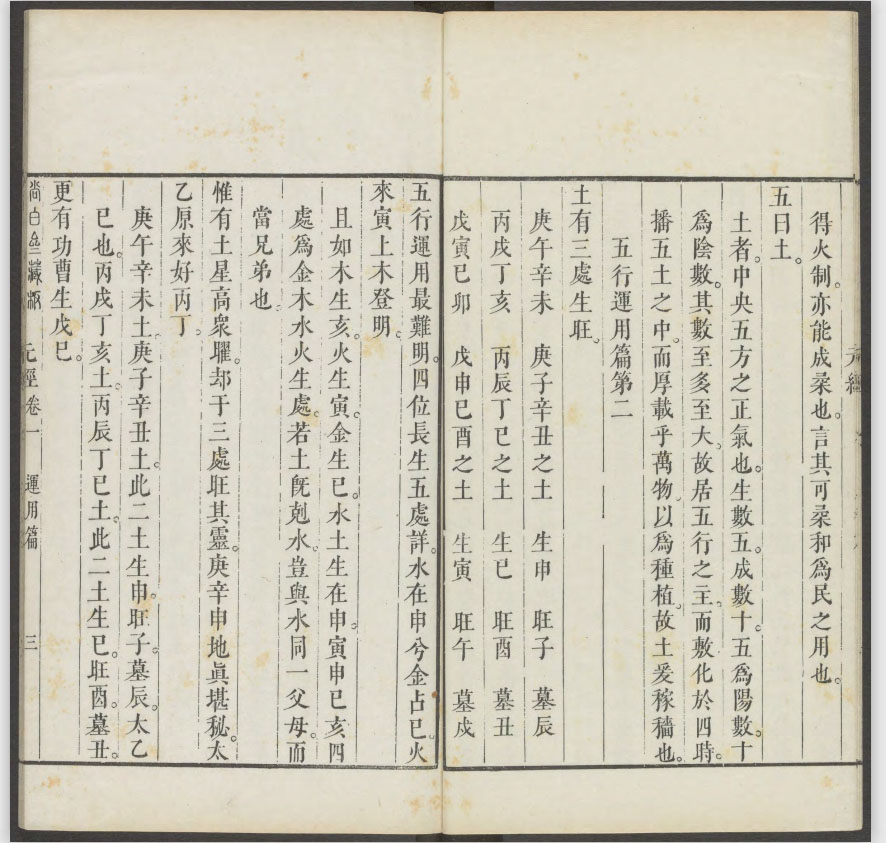 得火制。亦能成桒也。言其可桒和爲民之用也。
五曰土。
土者。中央五方之正氣也。生數五。成數十。五爲陽數。十
爲陰數。其數至多至大。故居五行之主。而敷化於四時。
播五土之中。而厚載乎萬物。以爲種植。故土爰稼穡也。
五行運用篇第二
土有三處生旺。
庚午辛未 庚子辛丑之土 生申 旺子 墓辰
丙戌丁亥 丙辰丁巳之土 生巳 旺酉 墓丑
戊寅己卯 戊申己酉之土 生寅 旺午 墓戍
五行運用最難明。四位長生五處詳。水在申兮金占巳。火
來寅上木登明。
且如木生亥。火生寅。金生巳。水土生在申。寅申巳亥四
處爲金木水火生處。若土旣剋水。豈與水同一父母。而
當兄弟也。
惟有土星高衆曜。却于三處旺其靈。庚辛申地眞堪秘。太
乙原來好丙丁。
庚午辛未土。庚子辛丑土。此二土生申。旺子。墓辰。太乙
巳也。丙戌丁亥土。丙辰丁巳土。此二土生巳。旺酉。墓丑。
更有功曹生戊巳。
尚白齋藏板 元經卷一 運用篇 三
元經